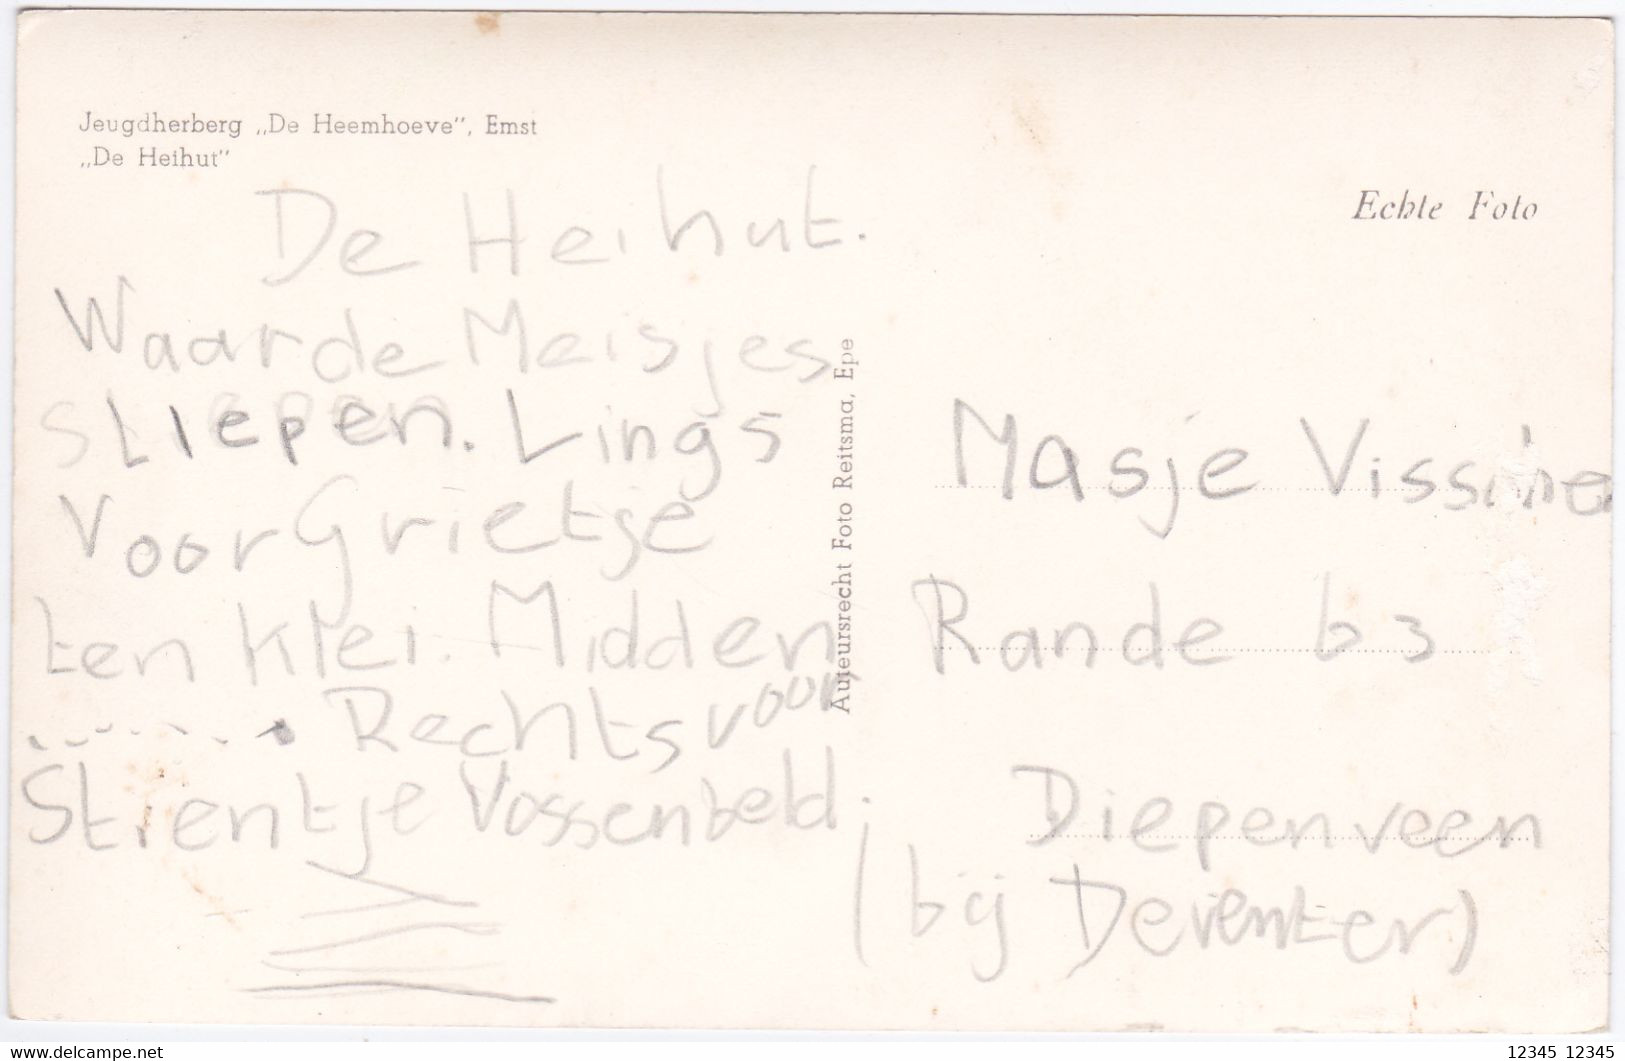 Jeugdherberg „De Heemhoeve”, Emst
„De Heihut”
De Heihut.
Waar de Meisjes
sliepen. Lings
voor Grietje
ten Klei. Midden
........ Rechts voor
Strientje Vossenbeld.
Auteursrecht Foto Reitsma, Epe
Echte Foto
Masje Visscher
Rande b3
Diepenveen
(bij Deventer)
www.delcampe.net
tekampe
12345 12345